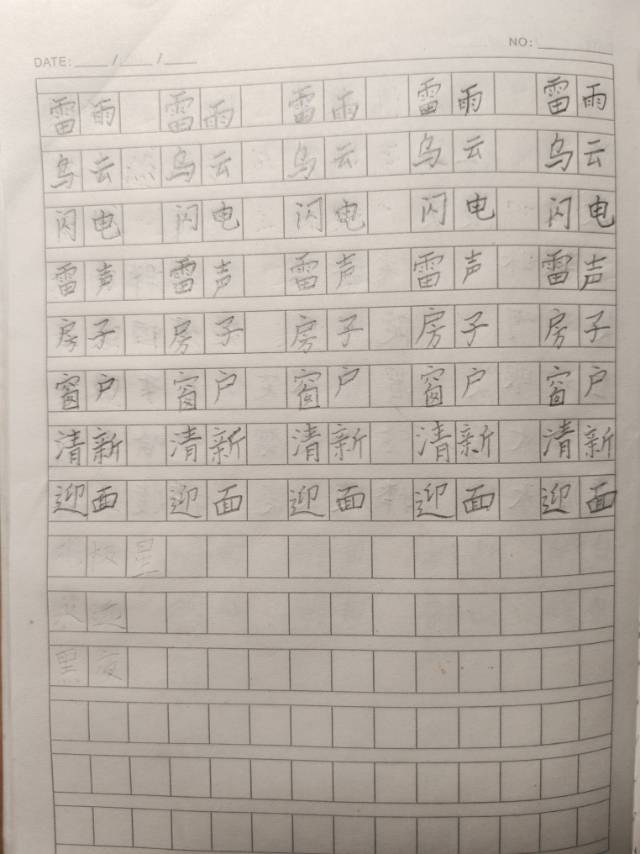 DATE: ___/___/___ NO: ______
雷雨 雷雨 雷雨 雷雨 雷雨
乌云 乌云 乌云 乌云 乌云
闪电 闪电 闪电 闪电 闪电
雷声 雷声 雷声 雷声 雷声
房子 房子 房子 房子 房子
窗户 窗户 窗户 窗户 窗户
清新 清新 清新 清新 清新
迎面 迎面 迎面 迎面 迎面
极星
黑夜